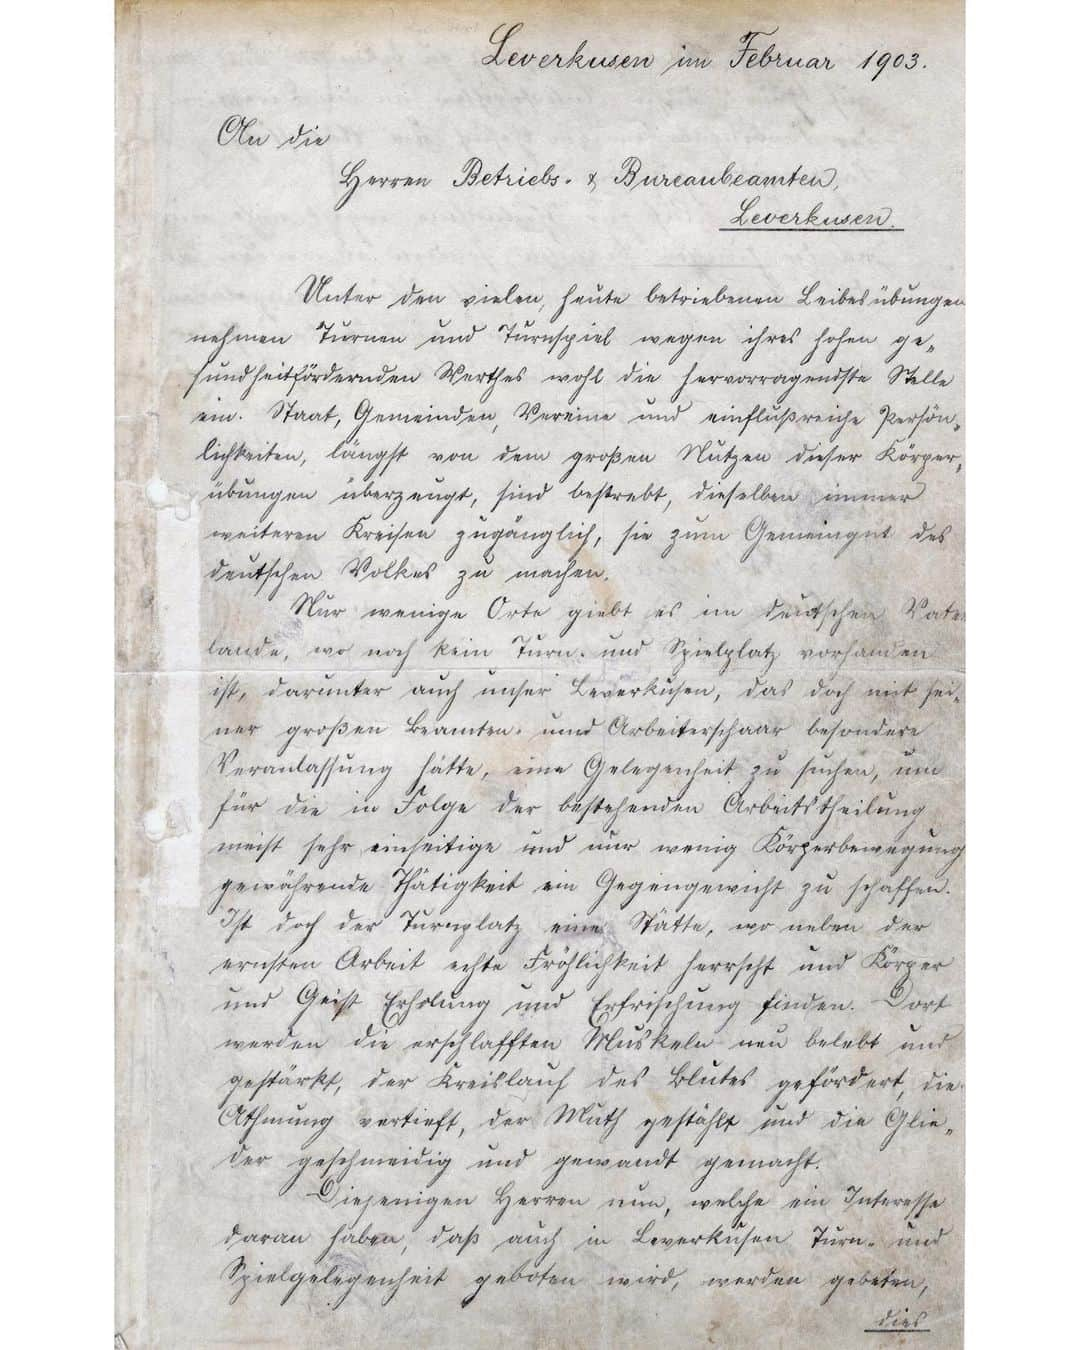 Leverkusen im Februar 1903.
An die
Herren Betriebs- & Bureaubeamten,
Leverkusen.
Unter den vielen, heute betriebenen Leibesübungen
nehmen Turnen und Turnspiel wegen ihres hohen ge„
sundheitfördernden Werthes wohl die hervorragendste Stelle
ein. Staat, Gemeinden, Vereine und einflußreiche Persön„
lichkeiten, längst von dem großen Nutzen dieser Körper„
übungen überzeugt, sind bestrebt, dieselben immer
weiteren Kreisen zugänglich, sie zum Gemeingut des
deutschen Volkes zu machen.
Nur wenige Orte giebt es im deutschen Vater
lande, wo noch kein Turn- und Spielplatz vorhanden
ist, darunter auch unser Leverkusen, das doch mit sei„
ner großen Beamten- und Arbeiterschaar besondere
Veranlassung hätte, eine Gelegenheit zu suchen, um
für die in Folge der bestehenden Arbeitstheilung
meist sehr einseitige und nur wenig Körperbewegung
gewährende Thätigkeit ein Gegengewicht zu schaffen.
Ist doch der Turnplatz eine Stätte, wo neben der
ernsten Arbeit echte Fröhlichkeit herrscht und Körper
und Geist Erholung und Erfrischung finden. Dort
werden die erschlafften Muskeln neu belebt und
gestärkt, der Kreislauf des Blutes gefördert, die
Athmung vertieft, der Muth gestählt und die Glie„
der geschmeidig und gewandt gemacht.
Diejenigen Herren nun, welche ein Interesse
daran haben, daß auch in Leverkusen Turn- und
Spielgelegenheit geboten wird, werden gebeten,
dies